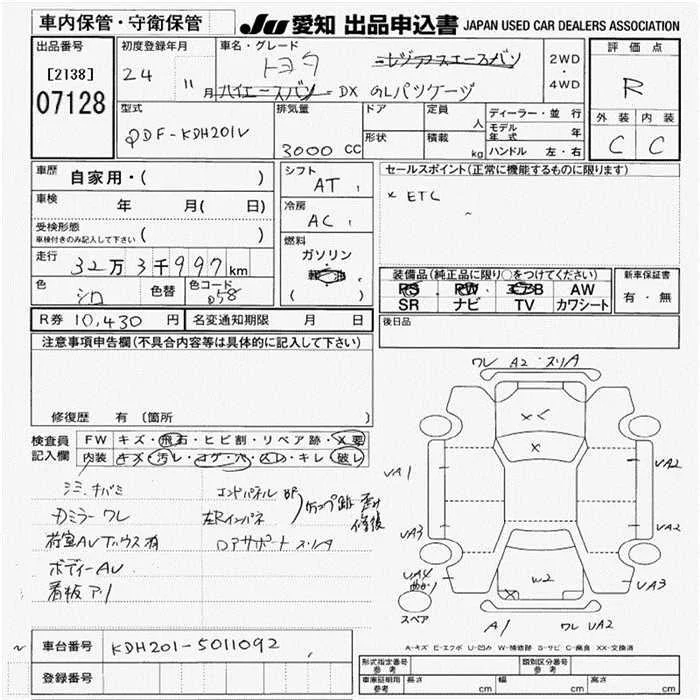 車内保管・守衛保管
JU 愛知 出品申込書 JAPAN USED CAR DEALERS ASSOCIATION
出品番号
[2138]
07128
初度登録年月
24 11月
車名・グレード
トヨタ
レジアスエースバン
ハイエースバン DX GLパッケージ
2WD
・
4WD
評価点
R
外装 内装
C C
型式
QDF-KDH201V
排気量
3000 CC
ドア
形状
定員 人
積載 kg
ディーラー・並行
モデル年式 年
ハンドル 左・右
車歴 自家用・( )
車検 年 月( 日)
受検形態
車検付きのみ記入して下さい ( )
走行 32万3千997km
色 シロ 色替 色コード 058
シフト
AT
冷房
AC
燃料
ガソリン
軽油
( )
セールスポイント(正常に機能するものに限ります)
× ETC
装備品(純正品に限り○をつけてください)
PS PW エアB AW
SR ナビ TV カワシート
新車保証書
有・無
R券 10,430 円 名変通知期限 月 日
後日品
注意事項申告欄(不具合内容等は具体的に記入して下さい)
修復歴 有 〔箇所 〕
検査員
記入欄
FW キズ・飛石・ヒビ割・リペア跡・X要
内装 キズ・汚レ・コゲ・穴・スレ・キレ・破レ
シミ ナバミ
カミラー ワレ
荷室AV
ボディーAV
看板アリ
エンドパネル
左Rインパネ
クランプ跡 歪み
修復
コアサポート ズリA
ワレ A2・ズリA
×<
×
UA1
UA2
UA3
UA2
UA4
UA3
W2
スペア
A1
ワレ UA2
A-キズ E-エクボ U-凹み W-補修跡 S-サビ C-腐食 XX-交換済
車台番号 KDH201-5011092
登録番号
形式指定番号
参考
類別区分番号
参考
車庫証明用
参考
長さ cm 幅 cm 高さ cm